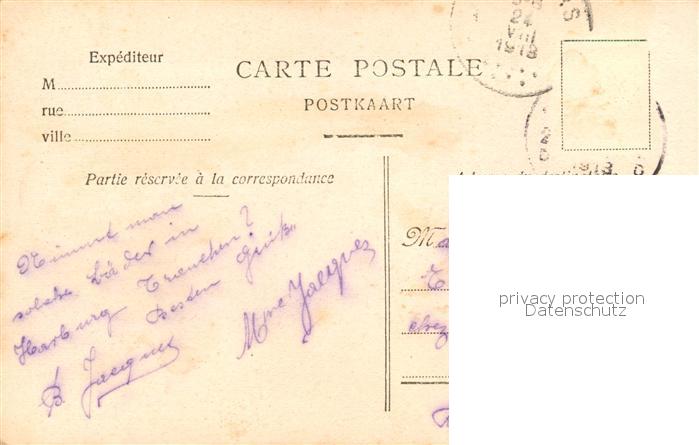 Expéditeur
M
rue
ville
CARTE POSTALE
POSTKAART
24
VIII
1913
1913
Partie réservée à la correspondance
Nimmt man
solche Bäder in
Harburg
Besten Gruß
B. Jacques
Mme Jacques
Ma
chez
privacy protection
Datenschutz